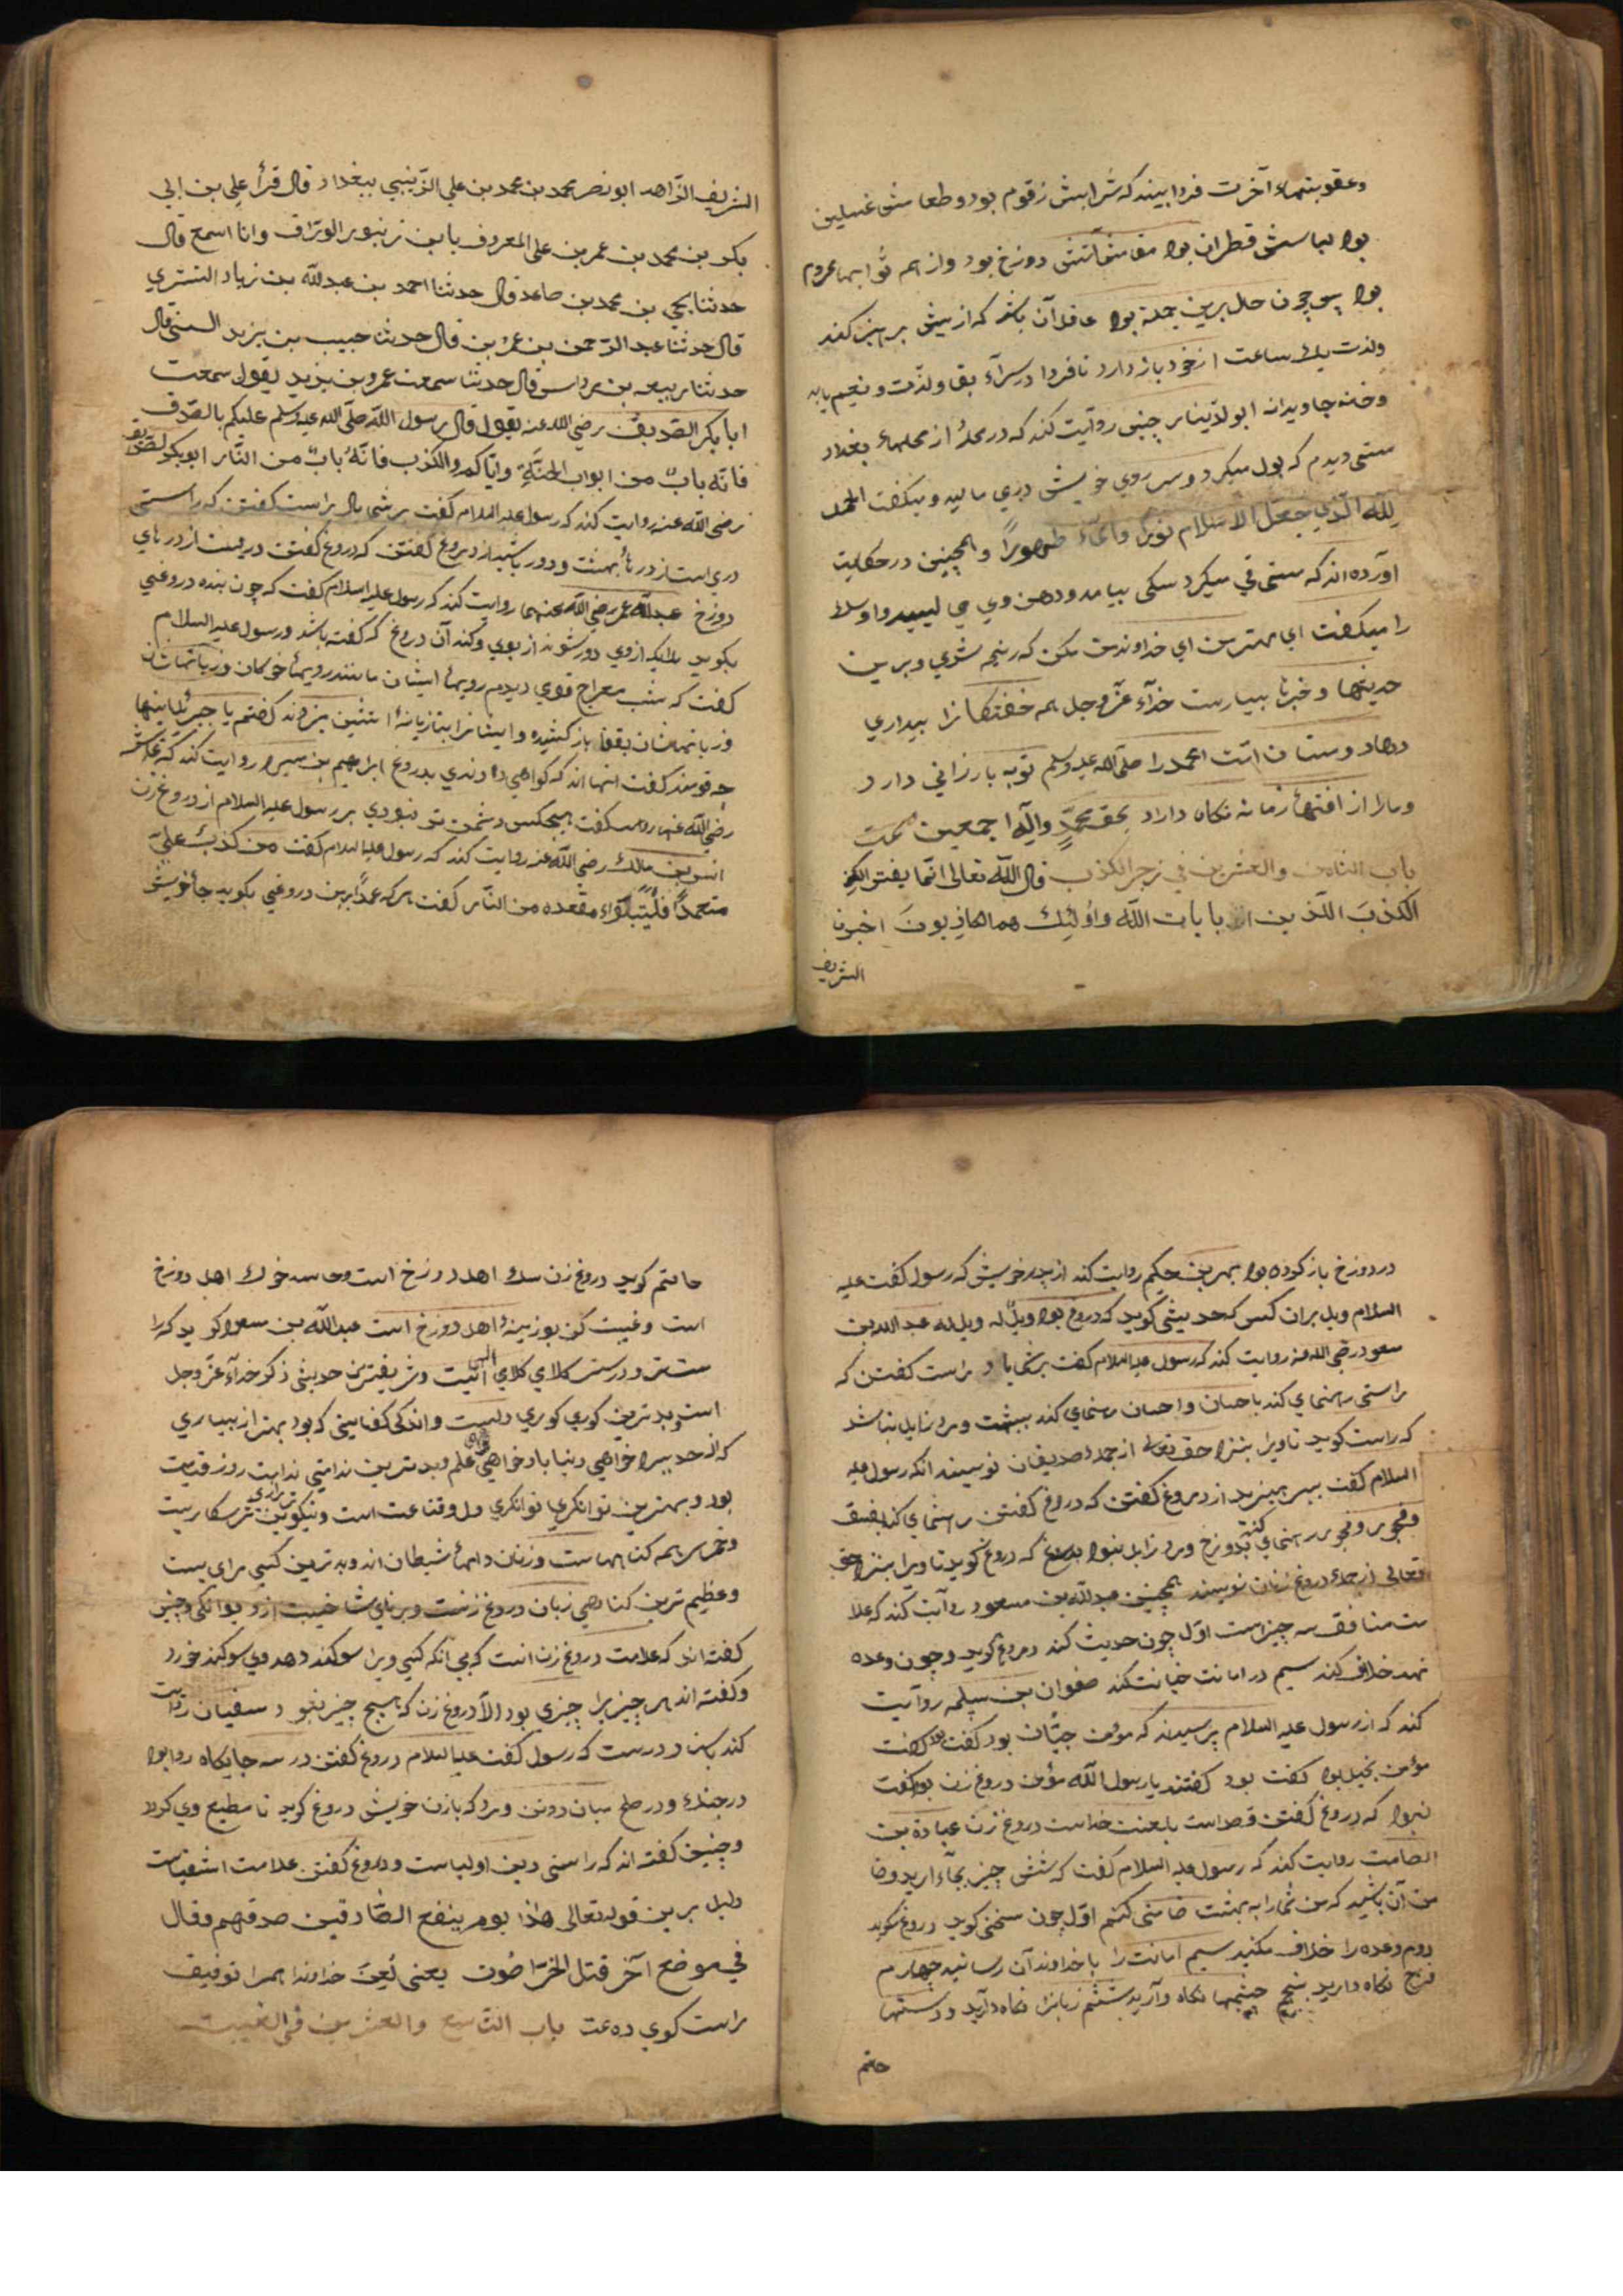 وعقوبتهاء آخرت فردا بیند که شرابش زقوم بود وطعامش غسلین
بود لباسش قطران بود مقامش آتش دوزخ بود واز همه ثوابها محروم
بود پس چون حال برین جمله بود عاقل آن باشد که ازپیش پرهیز کند
ولذت یك ساعت از خود باز دارد تا فردا در سرآء بقا ولذت ونعیم یابد
وخانه جاویدانه ابو الدنیا چنین روایت کند که در محلهٔ از محلهاء بغداد
مستی دیدم که بول میکرد وبر روی خویش می مالید ومیکفت الحمد
لله الّذي جعل الاسلام نورًا والماء طهورًا وهمچنین در حکایت
آورده اند که مستی قي میکرد سکی بیامد ودهن وي می لیسید واو سك
را میکفت اي مهتر من اي خداوند من مکن که رنجه شوي وبرین
حدیثها وخبرها بسیارست خدآء عزّ وجل همه خفتکانرا بیداري
دهاد ومستان امّت احمد را صلی الله علیه وسلم توبه بارزاني دارد
ومارا از افتهاء زمانه نکاه داراد بحق محمّد وآله اجمعین تمت
باب الثامن والعشرین في زجر الکذب قال الله تعالی انّما یفتری
الکذبَ الّذین بایات الله واولئك هم الکاذبونَ اخبرنا
الشریف
الشریف الزّاهد ابو نصر محمد بن محمد بن علي الزّینبي ببغداد قال قرأ علي بن ابي
بکر بن محمد بن عمر بن علي المعروف بابن زنبور الورّاق وانا اسمع قال
حدثنا یحیي بن محمد بن صاعد قال حدثنا احمد بن عبدالله بن زیاد التستري
قال حدثنا عبد الرّحمن بن عمرو بن قال حدثنا حبیب بن یزید قال
حدثنا ربیعه بن مرداس قال حدثنا سمعت عمرو بن یزید یقول سمعت
ابا بکر الصّدیق رضي الله عنه یقول قال رسول الله صلّی الله علیه وسلم علیکم بالصّدق
فانّه بابٌ من ابواب الجنّةِ وایّاکم والکذب فانّهُ بابٌ من النّار ابو بکر الصدیق
رضي الله عنه روایت کند که رسول علیه السلام کفت بر شما باد براست کفتن که راستی
دري است از درهاءِ بهشت ودور باشید از دروغ کفتن که دروغ کفتن دریست از درهاي
دوزخ عبدالله عمر رضي الله عنهما روایت کند که رسول علیه السلام کفت که چون بنده دروغي
بکوید ملایکه ازوي دور شوند از بوي وکند آن دروغ که کفته باشد ورسول علیه السلام
کفت که شب معراج قومي دیدم رویهاءِ ایشان مانند رویهاء خوکان وزبانهاشان
وزبانهاشان بقفا باز کشیده وایشانرا بتازیانهٔ اتشین میزدند کفتم یا جبرئیل اینها
چه قومند کفت اینها اند که کواهي دادندي بدروغ ابراهیم بن میسره روایت کند که عایشه
رضي الله عنها کفت هیچکس دشمن تر نبودي بر رسول علیه السلام از دروغ زن
انس بن مالك رضي الله عنه روایت کند که رسول علیه السلام کفت من کذب عليّ
متعمدًا فلیتبوّاء مقعده من النّار کفت هرکه عمدًا برمن دروغي بکوید جاي خویش
در دوزخ باز کرده بود بهز بن حکیم روایت کند از پدر خویش که رسول کفت علیه
السلام ویل بران کس که حدیثي کوید که دروغ بود ویلٌ له ویل له عبدالله بن
مسعود رضي الله عنه روایت کند که رسول علیه السلام کفت بر شما باد براست کفتن که
راستی رهنماي کند باحسان واحسان رهنماي کند ببهشت ومرد زایل نباشد
که راست کوید تا ویرا بنزد حق تعالی از جمله صدیقان نویسند انکه رسول علیه
السلام کفت بپرهیزید از دروغ کفتن که دروغ کفتن رهنماي کند بفسق
وفجور وفجور رهنماي کند بدوزخ ومرد زایل نبود که دروغ کوید تا ویرا بنزد حق
تعالی از جمله دروغ زنان نویسند همچنین عبدالله بن مسعود روایت کند که علا
مت منافق سه چیز است اوّل چون حدیث کند دروغ کوید وچون وعده
نهد خلاف کند سیم در امانت خیانت کند صفوان بن سلیم روایت
کند که از رسول علیه السلام پرسیدند که مؤمن جبّان بود کفت بود کفت
مؤمن بخیل بود کفت بود کفتند یا رسول الله مؤمن دروغ زن بود کفت
نبود که دروغ کفتن است بلعنت خداست دروغ زن عبادة بن
الصامت روایت کند که رسول علیه السلام کفت که شش چیز بجآء ارید وضا
من آن باشید که من شما را به بهشت ضامنی کنم اوّل چون سخن کوید دروغ مکوید
دوم وعده را خلاف مکنید سیم امانت را با خداوند آن رسانید چهارم
فرج نکاه دارید پنجم چشمها نکاه دارید ششم زبانرا نکاه دارید ودستها
حاتم
حاتم کوید دروغ زن سك اهل دوزخ است وحاسد خوك اهل دوزخ
است وغیبت کن بوزینهٔ اهل دوزخ است عبدالله بن مسعود کوید که را
ست تر ودرست کلامي کلام الهی است وشریفترین حدیثي ذکر خدآء عزّ وجل
است وبدترین کوري کوري دلست واندکي کفایتی که بود بهتر از بسیاري
که از حد بیرا خواهي دنیا باد خواهي علم وبدترین ندامتي ندامت روز قیامت
بود وبهترین توانکري توانکري دل وقناعت است ونیکوترین ترسکاریست
وخمر سر همه کناههاست وزنان دامهاءِ شیطان اند وبدترین کسبي رباست
وعظیم ترین کناهي زبان دروغ زنست وبرناي شاخیست از دیوانکي وچنین
کفته اند که علامت دروغ زن انست که بي انکه کسي ویرا سوکند دهد وي سوکند خورد
وکفته اند هر چیز را چیزي بود الاّ دروغ زن که هیچ چیز نبود سفیان روایت
کند باسناد درست که رسول کفت علیه السلام دروغ کفتن در سه جایکاه روا بود
در جنك ودر صلح میان دو تن ومرد که بازن خویش دروغ کوید تا مطیع وي کردد
وچنین کفته اند که راستی دین اولیاست ودروغ کفتن علامت اشقیاست
دلیل برین قوله تعالی هذا یوم ینفع الصّادقین صدقهم وقال
في موضع آخر قتل الخرّاصُون یعني لُعِنَ خداوندا همرا توفیق
راست کوي ده تمت باب التّاسع والعشرین في الغیبت